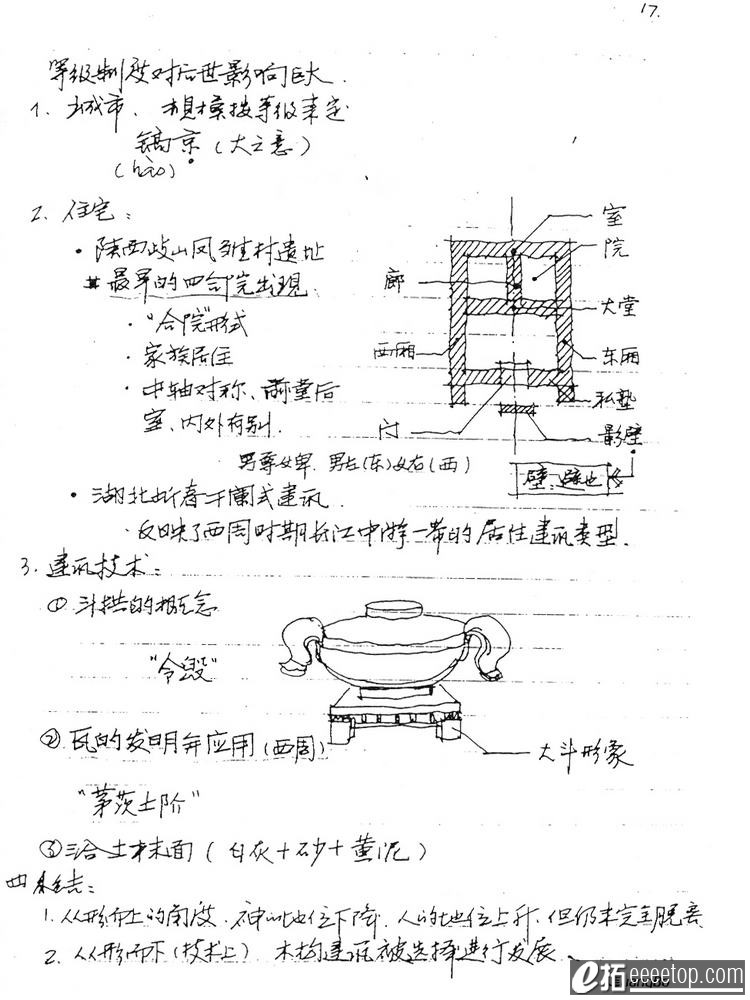 17.
等级制度对后世影响巨大.
1. 城市、规模按等级来定
镐京（大之意）
(hào)
2. 住宅：
· 陕西岐山凤雏村遗址
最早的四合院出现.
· "合院"形式
· 家族居住
· 中轴对称、前堂后
室、内外有别.
男尊女卑. 男左(东)女右(西)
室
院
廊
大堂
西厢
东厢
私塾
门
影壁
壁、避也
· 湖北蕲春干阑式建筑.
· 反映了西周时期长江中游一带的居住建筑类型.
3. 建筑技术：
① 斗拱的概念
"令毁"
② 瓦的发明并应用(西周)
大斗形象
"茅茨土阶"
③三合土抹面（白灰+砂+黄泥）
四
1. 从形而上的角度. 神的地位下降. 人的地位上升. 但仍未完全脱离
2. 从形而下(技术上) 木构建筑被选择进行发展.
e拓eeeetop.com